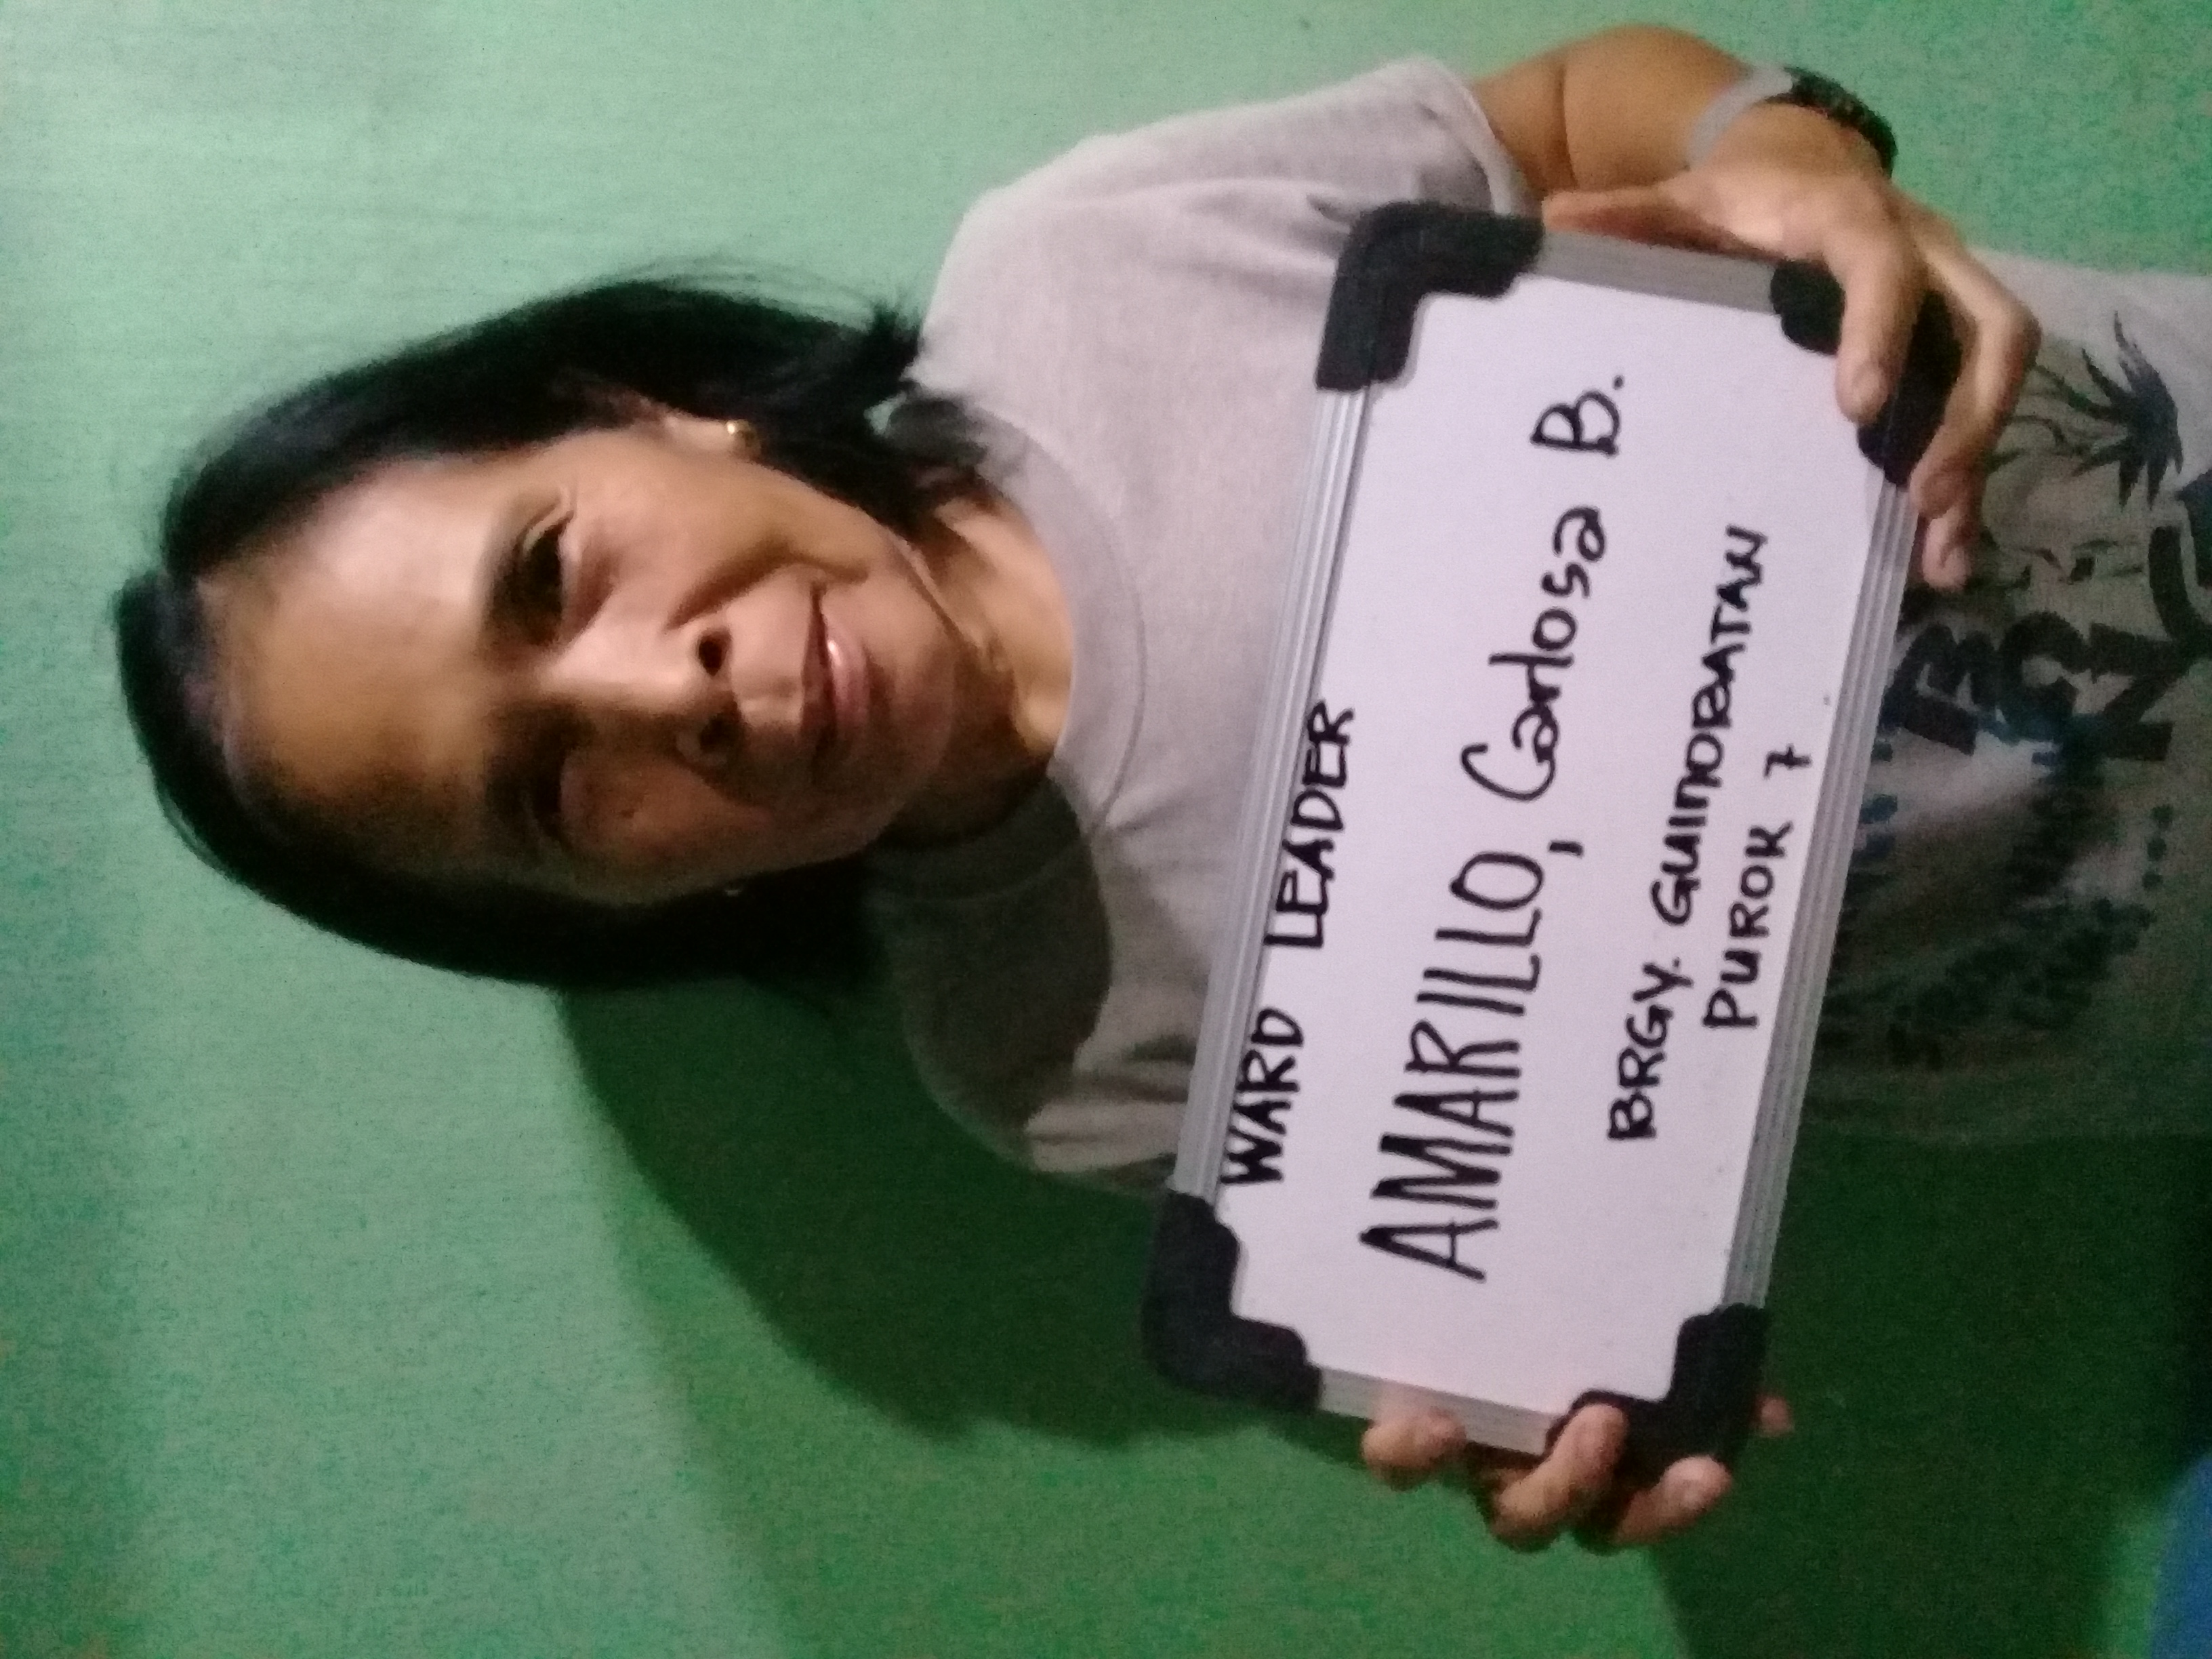 WARD LEADER
AMARILLO, Carlosa B.
BRGY. GUINOBATAN
PUROK 7